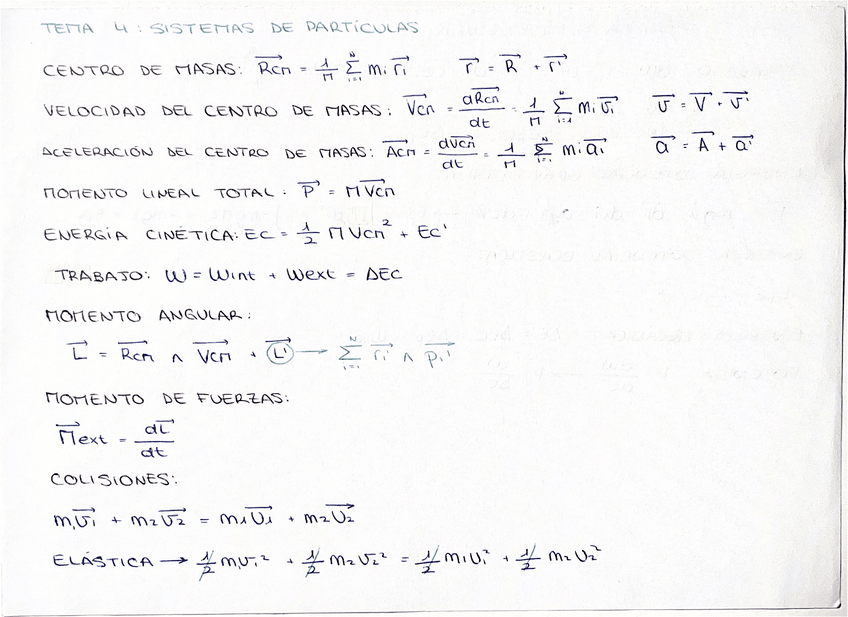 TEMA 4: SISTEMAS DE PARTÍCULAS
CENTRO DE MASAS: $\overrightarrow{Rcm} = \frac{1}{M} \sum_{i=1}^{N} mi \overrightarrow{ri}$ $\overrightarrow{r} = \overrightarrow{R} + \overrightarrow{r'}$
VELOCIDAD DEL CENTRO DE MASAS: $\overrightarrow{Vcm} = \frac{d\overrightarrow{Rcm}}{dt} = \frac{1}{M} \sum_{i=1}^{N} mi \overrightarrow{vi}$ $\overrightarrow{v} = \overrightarrow{V} + \overrightarrow{v'}$
ACELERACIÓN DEL CENTRO DE MASAS: $\overrightarrow{Acm} = \frac{d\overrightarrow{Vcm}}{dt} = \frac{1}{M} \sum_{i=1}^{N} mi \overrightarrow{ai}$ $\overrightarrow{a} = \overrightarrow{A} + \overrightarrow{a'}$
MOMENTO LINEAL TOTAL: $\overrightarrow{P} = M \overrightarrow{Vcm}$
ENERGÍA CINÉTICA: $Ec = \frac{1}{2} M Vcm^2 + Ec'$
TRABAJO: W = Wint + Wext = ΔEC
MOMENTO ANGULAR:
$\overrightarrow{L} = \overrightarrow{Rcm} \wedge \overrightarrow{Vcm} + \overrightarrow{L'} \longrightarrow \sum_{i=1}^{N} \overrightarrow{ri'} \wedge \overrightarrow{pi'}$
MOMENTO DE FUERZAS:
$\overrightarrow{M}ext = \frac{d\overrightarrow{L}}{dt}$
COLISIONES:
$m_1\overrightarrow{v_1} + m_2\overrightarrow{v_2} = m_1\overrightarrow{U_1} + m_2\overrightarrow{U_2}$
ELÁSTICA → $\frac{1}{2} m_1 v_1^2 + \frac{1}{2} m_2 v_2^2 = \frac{1}{2} m_1 U_1^2 + \frac{1}{2} m_2 U_2^2$